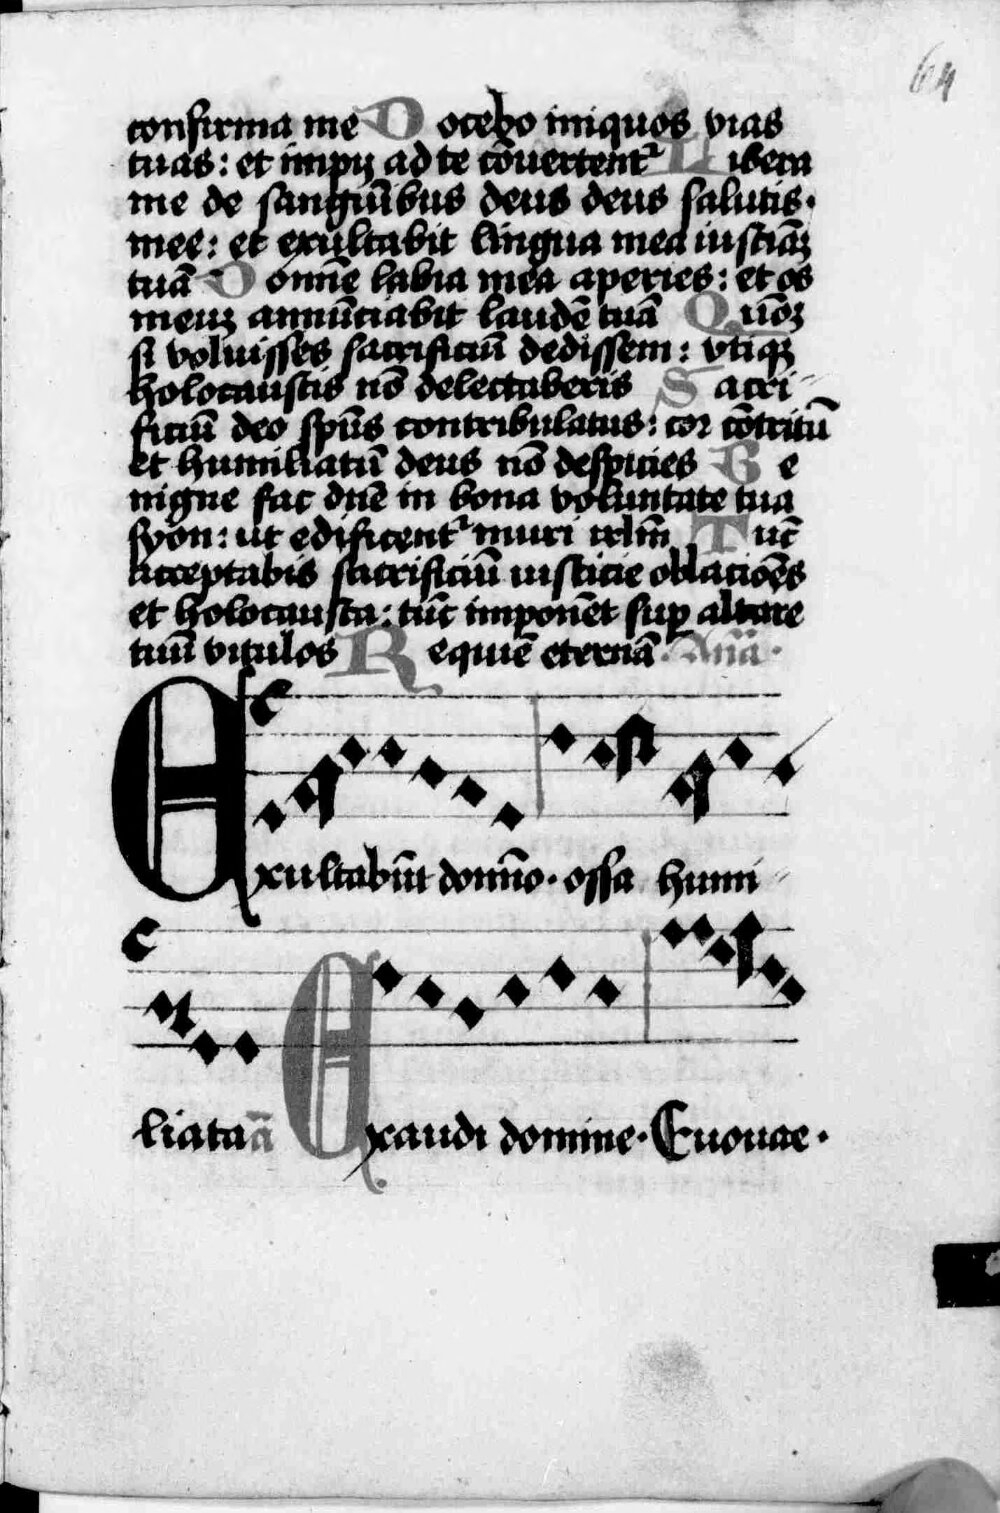 64
confirma me Docebo iniquos vias
tuas: et impij ad te cōuertentᷣ Libera
me de sanguībus deus deus salutis·
mee: et exultabit lingua mea iusticiāʒ
tuā Domīe labia mea aperies: et os
meuʒ annūciabit laudē tuā Quōʒ
si voluisses sacrificiū dedissem: vtiqʒ
holocaustis nō delectaberis Sacri-
ficiū deo spūs contribulatus: cor cōtritū
et humiliatū deus nō despicies Be
nigne fac dn̄e in bona voluntate tua
syon: ut edificentᷣ muri irl̄m Tūc
acceptabis sacrificiū iusticie oblacioēs
et holocausta: tūc imponēt sup̱ altare
tuū vitulos Requiē eternā· An̄a·
Exultabūt domīo· ossa humi-
liata ā Exaudi domine· Euouae·